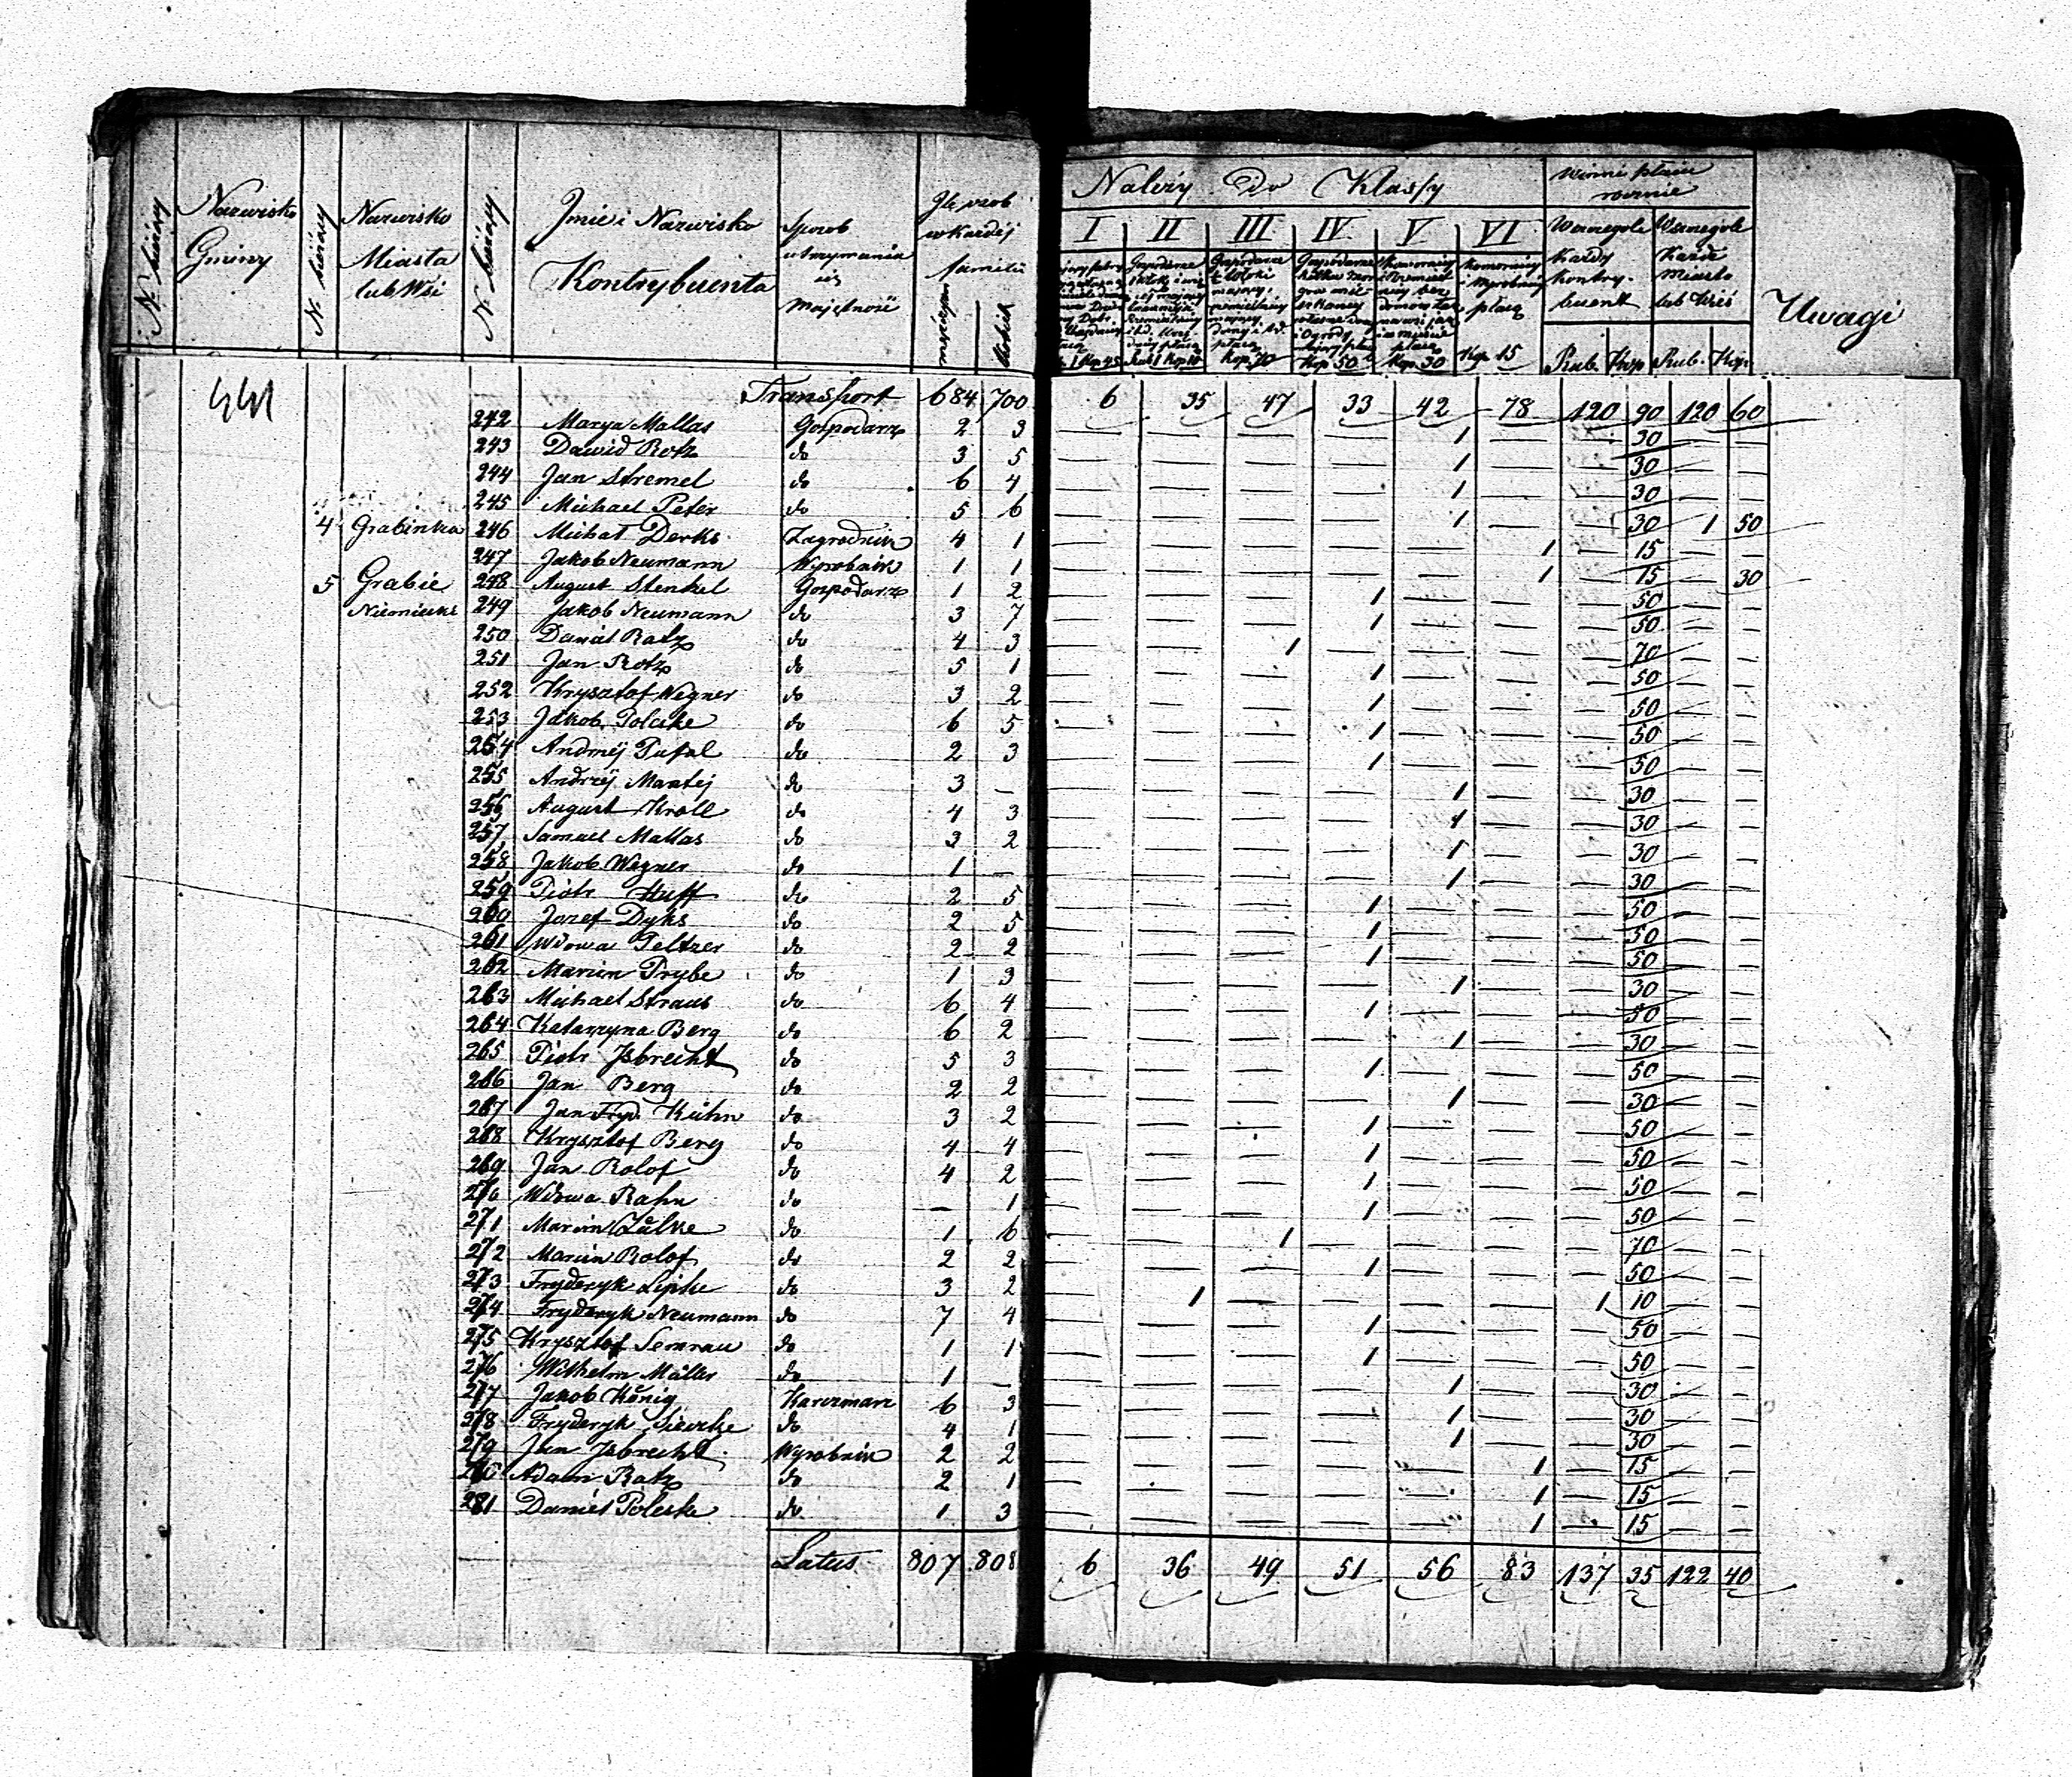 N. bieżący
Nazwisko Gminy
N. bieżący
Nazwisko Miasta lub Wsi
N. bieżący
Jmie i Nazwisko Kontrybuenta
Sposob utrzymania i majętność
Jle osob w każdej familii
mężczyzn
kobiet
Należy do Klassy
I II III IV V VI
Kop. 70
Kop. 50
Kop. 30
Kop. 15
winni płacić rocznie
Wszczegole każdy kontrybuent
Wszczegole każde miasto lub Wieś
Rub. Kop Rub. Kop.
Uwagi
Transport 684 700 6 35 47 33 42 78 120 90 120 60
242 Marya Mallas Gospodarz 2 3 — — — — 1 — — 30 — —
243 Dawid Rotz do 3 5 — — — — 1 — — 30 — —
244 Jan Stremel do 6 4 — — — — 1 — — 30 — —
245 Michael Peter do 5 6 — — — — 1 — — 30 1 50
4 Grabinka 246 Michał Derks Zagrodnik 4 1 — — — — — 1 — 15 — —
247 Jakob Neumann Wyrobnik 1 1 — — — — — 1 — 15 — 30
5 Grabie 248 August Stenkel Gospodarz 1 2 — — — 1 — — — 50 — —
Niemieckie 249 Jakob Neumann do 3 7 — — — 1 — — — 50 — —
250 Daniel Ratz do 4 3 — — 1 — — — — 70 — —
251 Jan Rotz do 5 1 — — — 1 — — — 50 — —
252 Krysztof Wegner do 3 2 — — — 1 — — — 50 — —
253 Jakob Poleske do 6 5 — — — 1 — — — 50 — —
254 Andrzej Pufal do 2 3 — — — 1 — — — 50 — —
255 Andrzej Mantej do 3 — — — — — 1 — — 30 — —
256 August Kroll do 4 3 — — — — 1 — — 30 — —
257 Samuel Mallas do 3 2 — — — — 1 — — 30 — —
258 Jakob Wegner do 1 — — — — — 1 — — 30 — —
259 Piotr Huff do 2 5 — — — 1 — — — 50 — —
260 Jozef Dyks do 2 5 — — — 1 — — — 50 — —
261 Wdowa Peltzer do 2 2 — — — 1 — — — 50 — —
262 Marcin Prybe do 1 3 — — — — 1 — — 30 — —
263 Michael Straus do 6 4 — — — 1 — — — 50 — —
264 Katarzyna Berg do 6 2 — — — — 1 — — 30 — —
265 Piotr Jsbrecht do 5 3 — — — 1 — — — 50 — —
266 Jan Berg do 2 2 — — — — 1 — — 30 — —
267 Jan Fryd. Kühn do 3 2 — — — 1 — — — 50 — —
268 Krysztof Berg do 4 4 — — — 1 — — — 50 — —
269 Jan Rolof do 4 2 — — — 1 — — — 50 — —
270 Wdowa Rahn do — 1 — — — 1 — — — 50 — —
271 Marcin Zülke do 1 6 — — 1 — — — — 70 — —
272 Marcin Rolof do 2 2 — — — 1 — — — 50 — —
273 Fryderyk Lipke do 3 2 — 1 — — — — 1 10 — —
274 Fryderyk Neumann do 7 4 — — — 1 — — — 50 — —
275 Krysztof Semrau do 1 1 — — — 1 — — — 50 — —
276 Wilhelm Müller do 1 — — — — — 1 — — 30 — —
277 Jakob König Karczmarz 6 3 — — — — 1 — — 30 — —
278 Fryderyk Siewcke do 4 1 — — — — 1 — — 30 — —
279 Jan Jsbrecht Wyrobnik 2 2 — — — — — 1 — 15 — —
280 Adam Ratz do 2 1 — — — — — 1 — 15 — —
281 Daniel Poleske do 1 3 — — — — — 1 — 15 — —
Latus 807 808 6 36 49 51 56 83 137 35 122 40